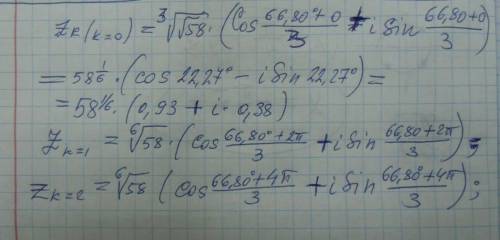 Z k (k=0) = ∛√58 · (Cos (66,80°+0)/3 + i Sin (66,80+0)/3)
= 58^(1/6) · (cos 22,27° − i Sin 22,27°) =
= 58^(1/6) · (0,93 + i · 0,38)
Z k=1 = ⁶√58 · (cos (66,80°+2π)/3 + i Sin (66,80+2π)/3);
Z k=2 = ⁶√58 (cos (66,80°+4π)/3 + i Sin (66,80°+4π)/3);